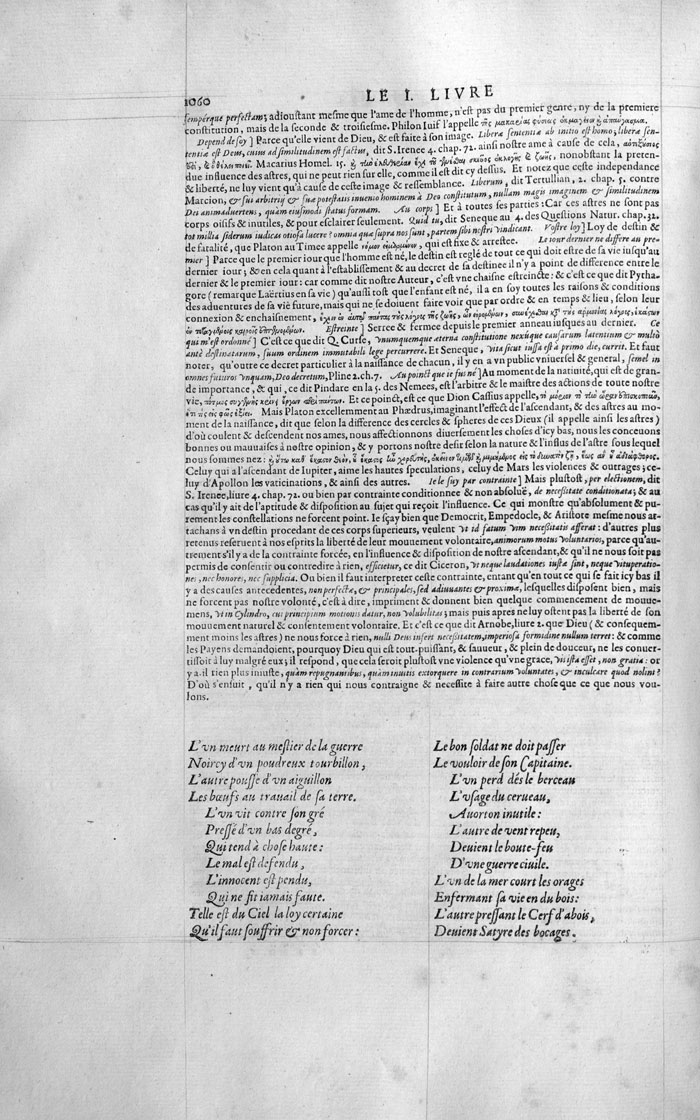 1060
LE I. LIVRE
semperque perfectam; adioustant mesme que l'ame de l'homme, n'est pas du premier genre, ny de la premiere
constitution, mais de la seconde & troisiesme. Philon Iuif l'appelle
Depend de soy ] Parce qu'elle vient de Dieu, & est faite à son image. Liberæ sententiæ ab initio est homo; liberæ sen-
tentiæ est Deus, cuius ad similitudinem est factus, dit S. Irenee 4. chap. 72. ainsi nostre ame à cause de cela,
Macarius Homel. 15. nonobstant la preten-
due influence des astres, qui ne peut rien sur elle, comme il est dit cy dessus. Et notez que ceste independance
& liberté, ne luy vient qu'à cause de ceste image & ressemblance. Liberum, dit Tertullian, 2. chap. 5. contre
Marcion, & sui arbitrij & suæ potestatis inuenio hominem à Deo constitutum, nullam magis imaginem & similitudinem
Dei animaduertens, quàm eiusmodi status formam. Au corps ] Et à toutes ses parties : Car ces astres ne sont pas
corps oisifs & inutiles, & pour esclairer seulement. Quid tu, dit Seneque au 4. des Questions Natur. chap. 32.
tot millia siderum iudicas otiosa lucere ? omnia quæ supra nos sunt, partem sibi nostri vindicant. Vostre loy ] Loy de destin &
de fatalité, que Platon au Timee appelle qui est fixe & arrestee. Le iour dernier ne differe au pre-
mier ] Parce que le premier iour que l'homme est né, le destin est reglé de tout ce qui doit estre de sa vie iusqu'au
dernier iour ; & en cela quant à l'establissement & au decret de sa destinee il n'y a point de difference entre le
dernier & le premier iour : car comme dit nostre Auteur, c'est vne chaisne estreincte : & c'est ce que dit Pytha-
gore (remarque Laërtius en sa vie) qu'aussi tost que l'enfant est né, il a en soy toutes les raisons & conditions
des aduentures de sa vie future, mais qui ne se doiuent faire voir que par ordre & en temps & lieu, selon leur
connexion & enchaisnement,
Estreinte ] Serree & fermee depuis le premier anneau iusques au dernier. Ce
qui m'est ordonné ] C'est ce que dit Q. Curse, vnumquemque æterna constitutione nexúque causarum latentium & multò
antè destinatarum, suum ordinem immutabili lege percurrere. Et Seneque, vita sicut iussa est à primo die, currit. Et faut
noter, qu'outre ce decret particulier à la naissance de chacun, il y en a vn public vniuersel & general, semel in
omnes futuros vnquam, Deo decretum, Pline 2. ch. 7. Au poinct que ie fus né ] Au moment de la natiuité, qui est de gran-
de importance, & qui, ce dit Pindare en la 5. des Nemees, est l'arbitre & le maistre des actions de toute nostre
vie, Et ce poinct, est ce que Dion Cassius appelle,
Mais Platon excellemment au Phædrus, imaginant l'effect de l'ascendant, & des astres au mo-
ment de la naissance, dit que selon la difference des cercles & spheres de ces Dieux (il appelle ainsi les astres)
d'où coulent & descendent nos ames, nous affectionnons diuersement les choses d'icy bas, nous les conceuons
bonnes ou mauuaises à nostre opinion, & y portons nostre desir selon la nature & l'influs de l'astre sous lequel
nous sommes nez :
Celuy qui a l'ascendant de Iupiter, aime les hautes speculations, celuy de Mars les violences & outrages ; ce-
luy d'Apollon les vaticinations, & ainsi des autres. Ie le suy par contrainte ] Mais plustost, per electionem, dit
S. Irenee, liure 4. chap. 72. ou bien par contrainte conditionnee & non absoluë, de necessitate conditionata; & au
cas qu'il y ait de l'aptitude & disposition au sujet qui reçoit l'influence. Ce qui monstre qu'absolument & pu-
rement les constellations ne forcent point. Ie sçay bien que Democrit, Empedocle, & Aristote mesme nous at-
tachans à vn destin procedant de ces corps superieurs, veulent vt id fatum vim necessitatis afferat : d'autres plus
retenus reseruent à nos esprits la liberté de leur mouuement volontaire, animorum motus voluntarios, parce qu'au-
trement s'il y a de la contrainte forcée, en l'influence & disposition de nostre ascendant, & qu'il ne nous soit pas
permis de consentir ou contredire à rien, efficietur, ce dit Ciceron, vt neque laudationes iustæ sint, neque vituperatio-
nes, nec honores, nec supplicia. Ou bien il faut interpreter ceste contrainte, entant qu'en tout ce qui se fait icy bas il
y a des causes antecedentes, non perfectæ, & principales, sed adiuuantes & proximæ, lesquelles disposent bien, mais
ne forcent pas nostre volonté, c'est à dire, impriment & donnent bien quelque commencement de mouue-
mens, vt in Cylindro, cui principium motionis datur, non volubilitas ; mais puis apres ne luy ostent pas la liberté de son
mouuement naturel & consentement volontaire. Et c'est ce que dit Arnobe, liure 2. que Dieu (& consequem-
ment moins les astres) ne nous force à rien, nulli Deus infert necessitatem, imperiosa formidine nullum terret : & comme
les Payens demandoient, pourquoy Dieu qui est tout-puissant, & sauueur, & plein de douceur, ne les conuer-
tissoit à luy malgré eux ; il respond, que cela seroit plustost vne violence qu'vne grace, vis ista esset, non gratia : or
y a-il rien plus iniuste, quàm repugnantibus, quàm inuitis extorquere in contrarium voluntates, & inculcare quod nolint ?
D'où s'ensuit, qu'il n'y a rien qui nous contraigne & necessite à faire autre chose que ce que nous vou-
lons.
L'vn meurt au mestier de la guerre
Noircy d'vn poudreux tourbillon,
L'autre pousse d'vn aiguillon
Les bœufs au trauail de sa terre.
L'vn vit contre son gré
Pressé d'vn bas degré,
Qui tend à chose haute :
Le mal est defendu,
L'innocent est pendu,
Qui ne fit iamais faute.
Telle est du Ciel la loy certaine
Qu'il faut souffrir & non forcer :
Le bon soldat ne doit passer
Le vouloir de son Capitaine.
L'vn perd dés le berceau
L'vsage du cerueau,
Auorton inutile :
L'autre de vent repeu,
Deuient le boute-feu
D'vne guerre ciuile.
L'vn de la mer court les orages
Enfermant sa vie en du bois :
L'autre pressant le Cerf d'abois,
Deuient Satyre des bocages.